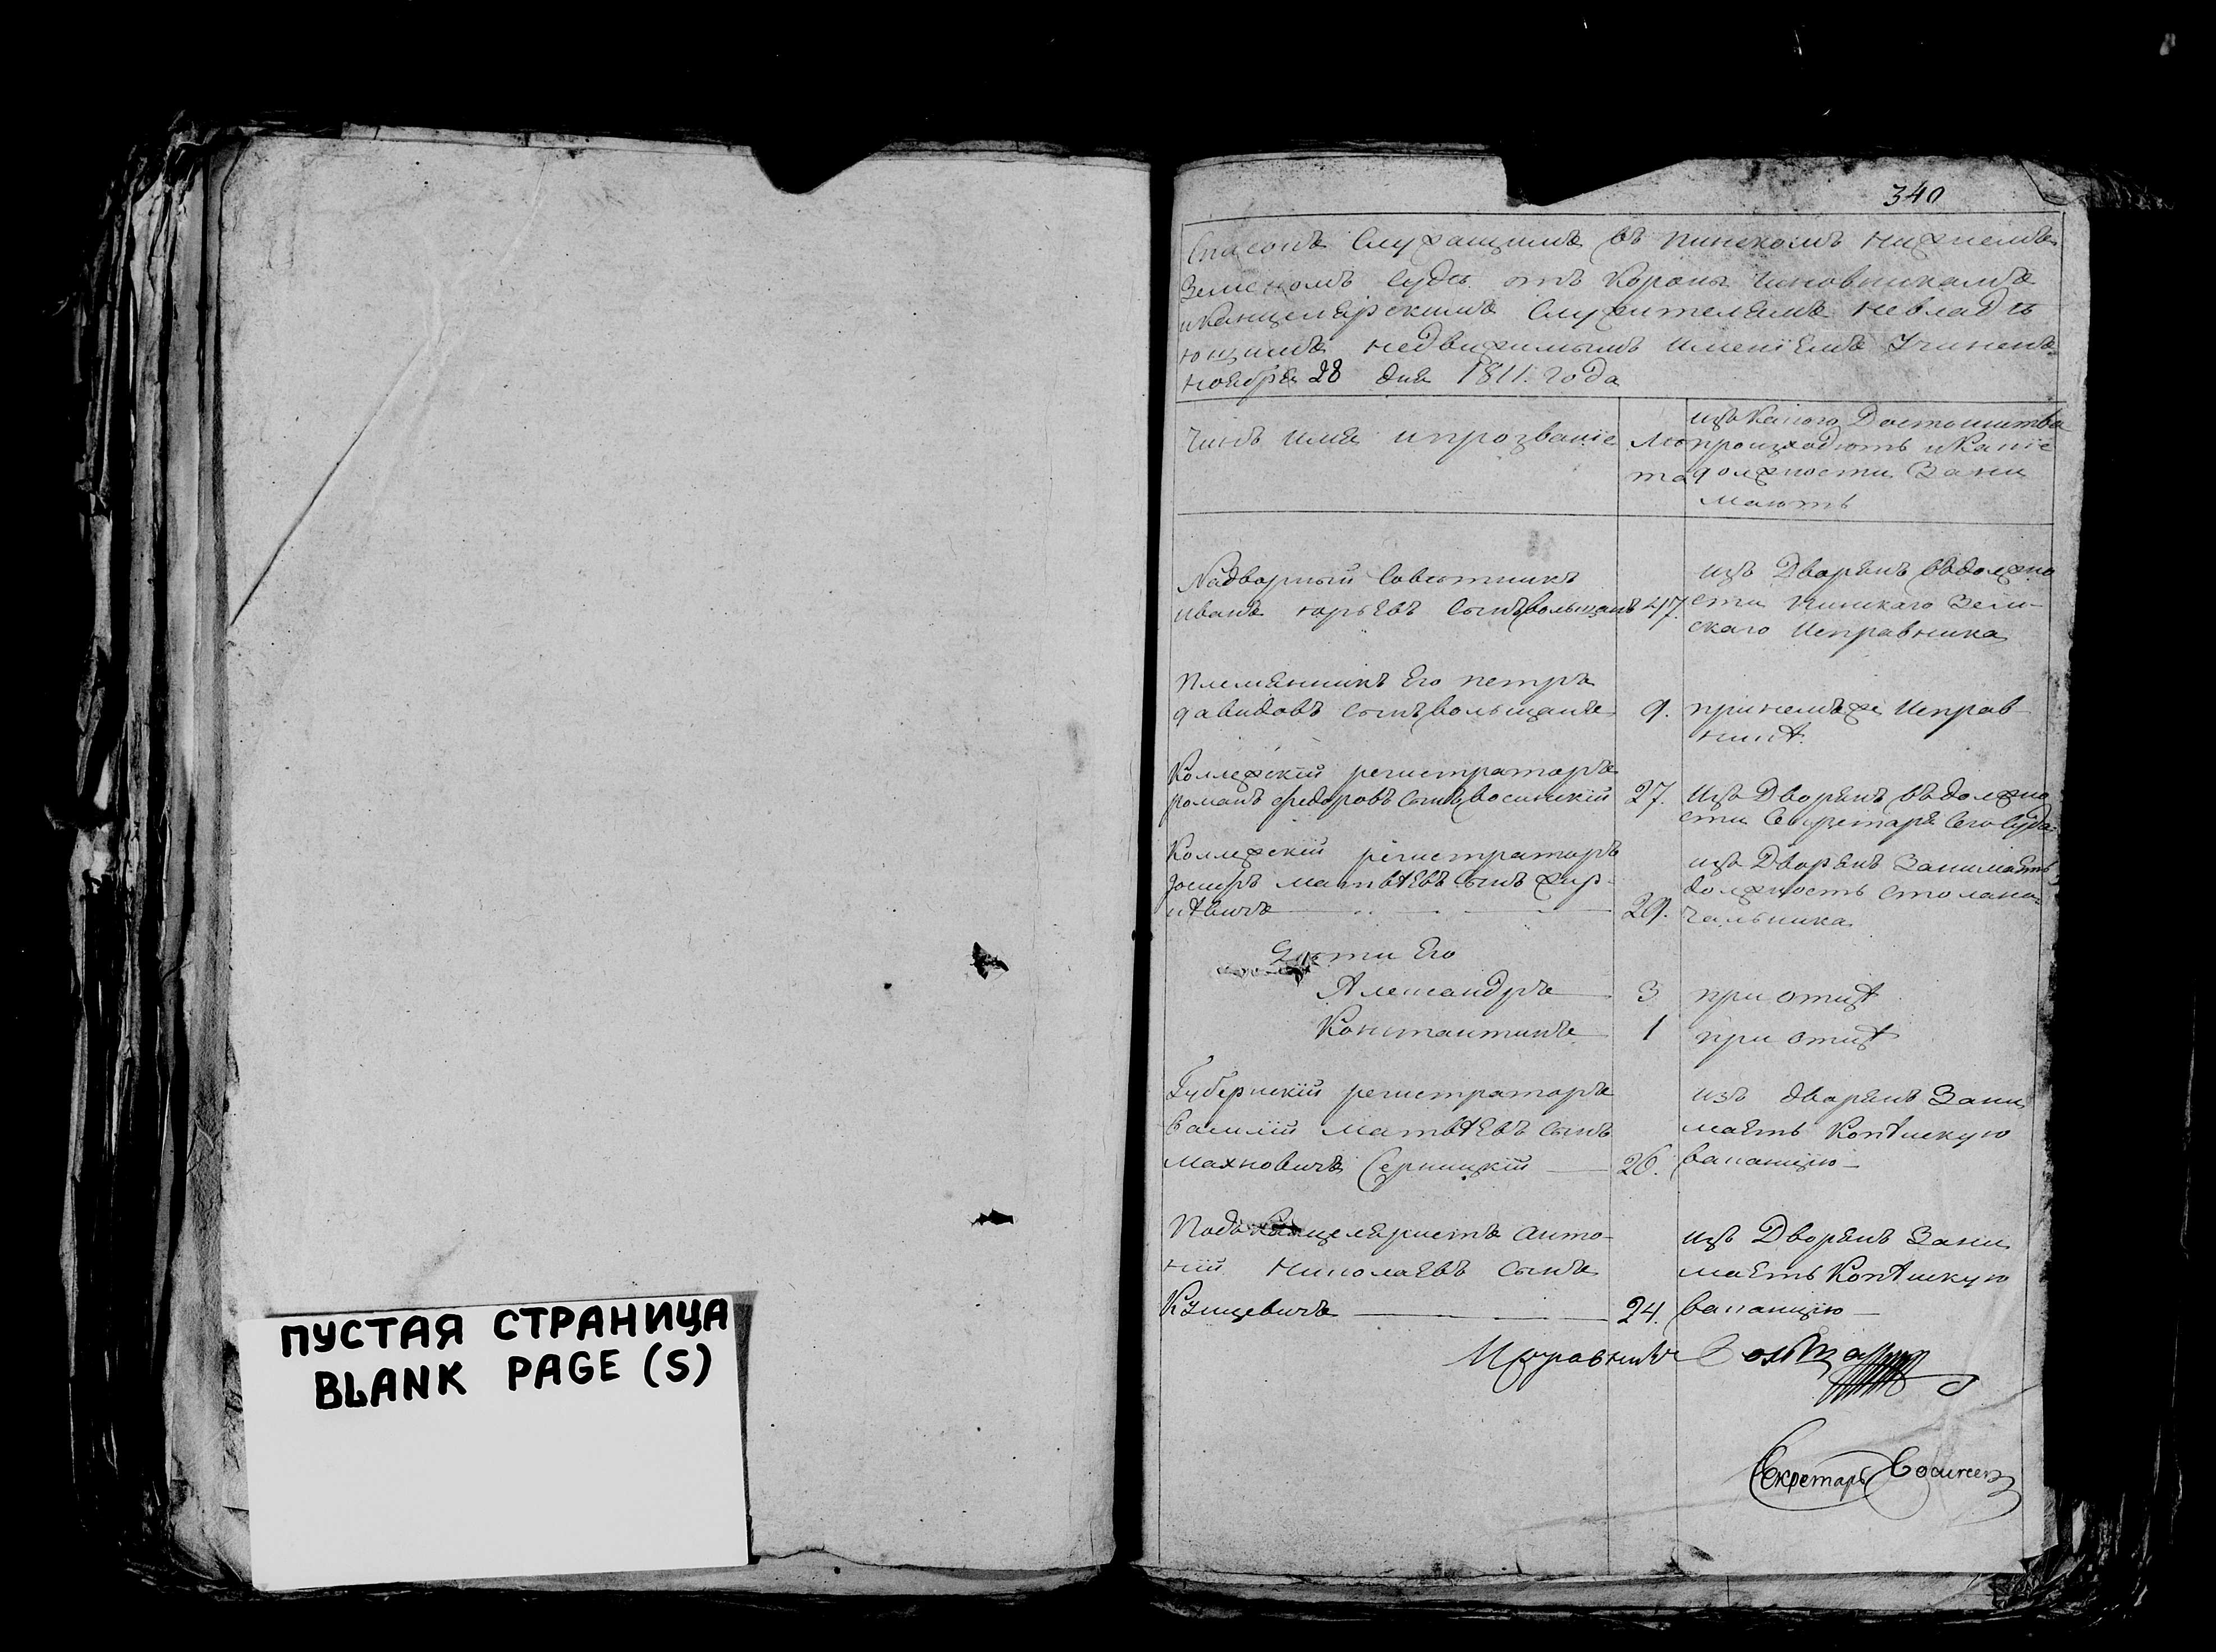 ПУСТАЯ СТРАНИЦА
BLANK PAGE (S)
340
Списокъ Служащимъ въ пинскомъ нижнемъ
Земскомъ Судѣ отъ Короны Чиновникамъ
иКанцелярскимъ Служителямъ невладѣ
ющимъ недвижимымъ имѣніемъ Учиненъ
ноября 28 дня 1811. года
Чинъ имя ипрозваніе
лѣ
та
изъ Какого Достоинства
произходютъ иКакіе
должности Зани
маютъ
Надворный Совѣтникъ
иванъ юрьевъ Сынъ волынцъ 47.
изъ Дворянъ въдолжно
сти пинскаго Зем-
скаго Исправника
племянникъ Его петръ
давидовъ сынъ 9. при немъ же Исправ-
никѣ.
Коллежскій регистраторъ
романъ федоровъ сынъ восинскій 27. Изъ Дворянъ въдолжно
сти Секретаря Сего Суда
Коллежскій регистраторъ
Іосифъ матвѣевъ сынъ 29.
изъ Дворянъ Занимаетъ
должность столона-
чальника
Дѣти Его
Александръ 3 при отцѣ
Константинъ 1 при отцѣ
Губернскій регистраторъ
василій матвѣевъ сынъ
махновичъ Серницкій 26.
изъ дворянъ Зани
маетъ Копѣискую
ваканцію
Подъ Канцеляристъ анто-
ній николаевъ сынъ
24.
изъ Дворянъ Зани
маетъ Копѣискую
ваканцію
Исправникъ
Секретарь